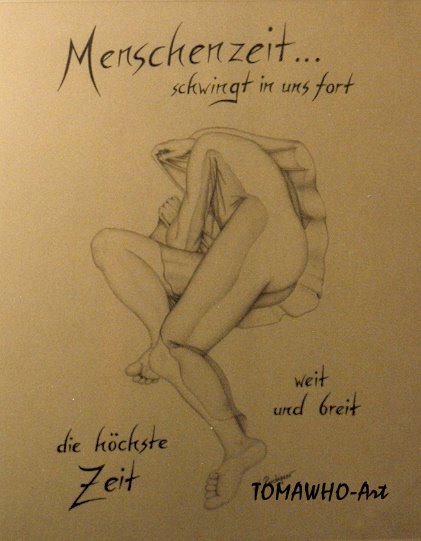 Menschenzeit...
schwingt in uns fort
weit
und breit
die höchste
Zeit
TOMAWHO-Art